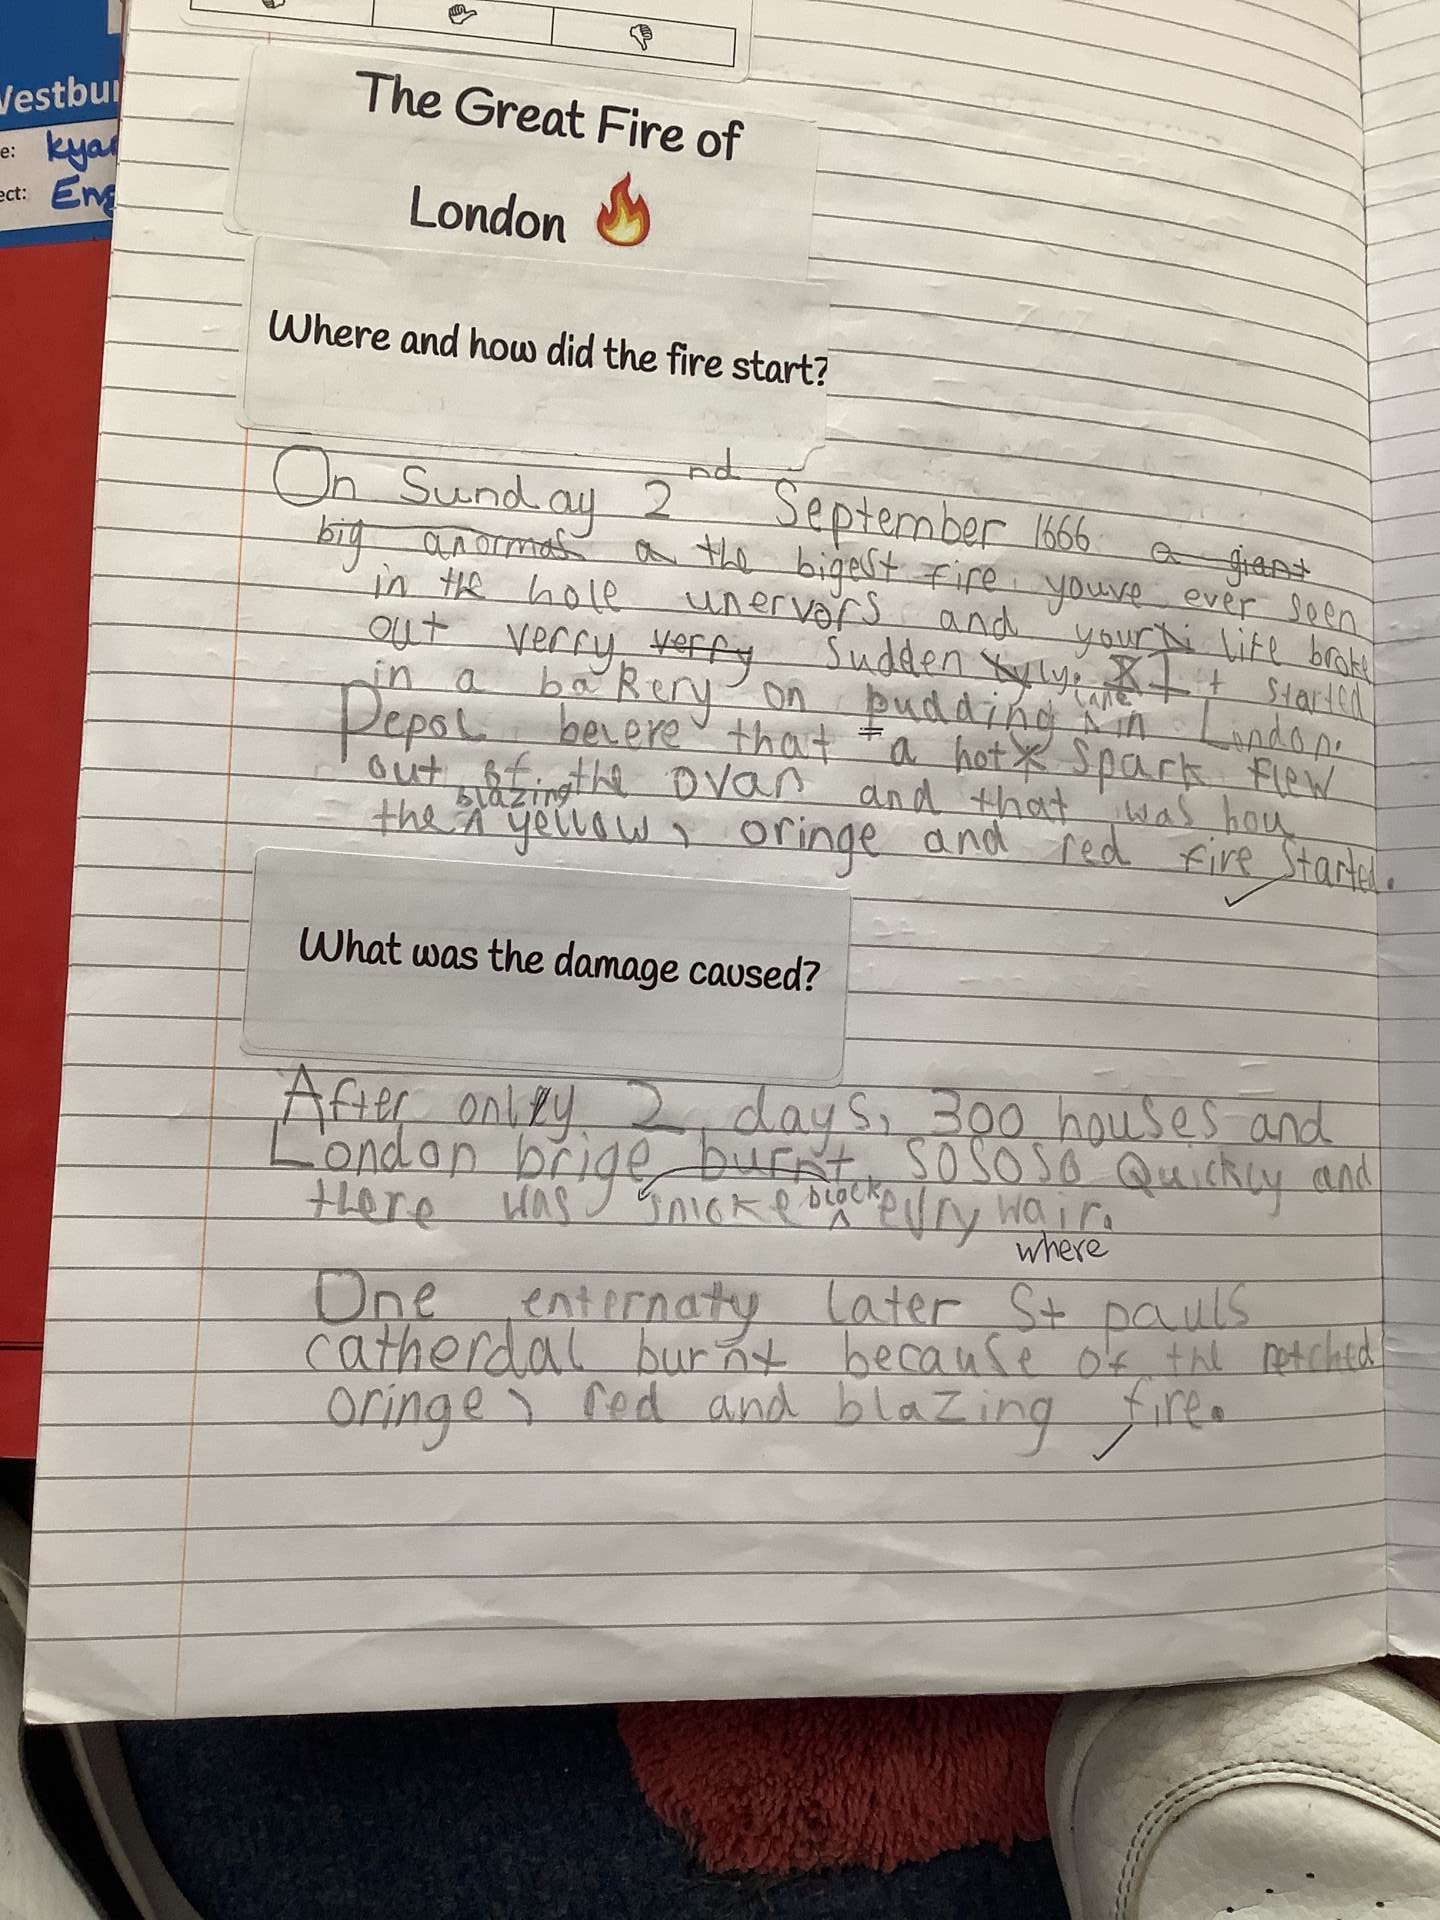 Westbu
e: kya
ect: Eng
The Great Fire of
London 🔥
Where and how did the fire start?
On Sunday 2nd September 1666 a giant
big anormas a the bigest fire youve ever seen
in the hole unervors and your life broke
out verry verry suddenly. It started
in a bakery on pudding lane in London.
Pepol belere that a hot spark flew
out of the ovan and that was hou
the blazing yellow, oringe and red fire started.
What was the damage caused?
After only 2 days, 300 houses and
London brige burnt sososo Quickly and
there was smoke black evrywair.
where
One enternaty later St pauls
catherdal burnt because of the
oringe, red and blazing fire.